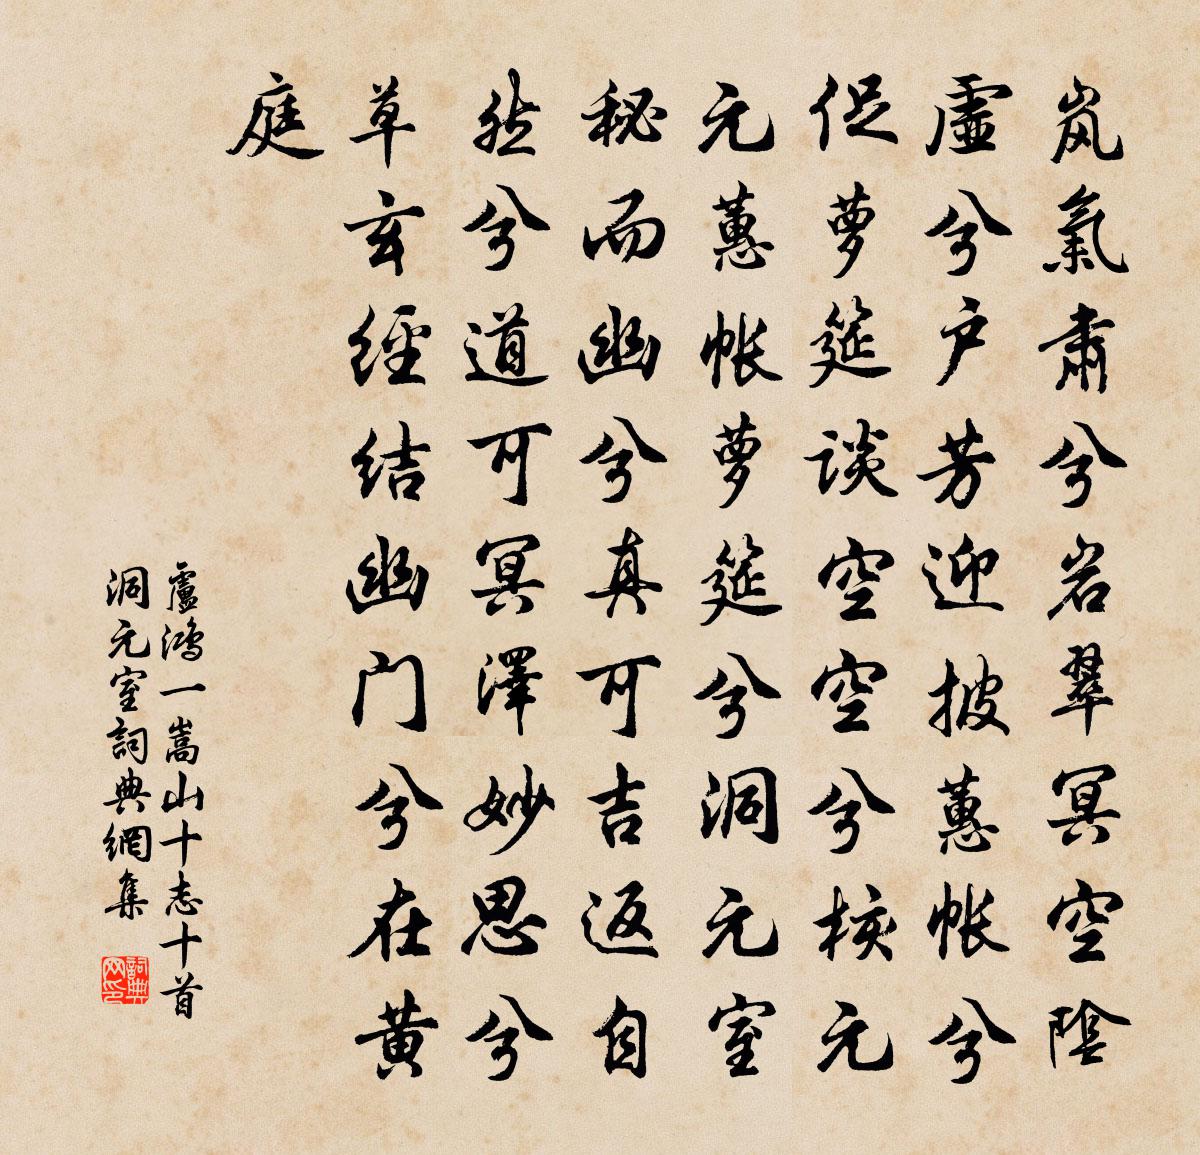 岚氣肅兮岩翠冥空陰
虛兮户芳迎披蕙帳兮
促萝筵談空空兮核元
元蕙帐萝筵兮洞元室
秘而幽兮真可吉返自
然兮道可冥澤妙思兮
草玄經结幽门兮在黄
庭
盧鴻一嵩山十志十首
洞元室詞典網集
詞典网印